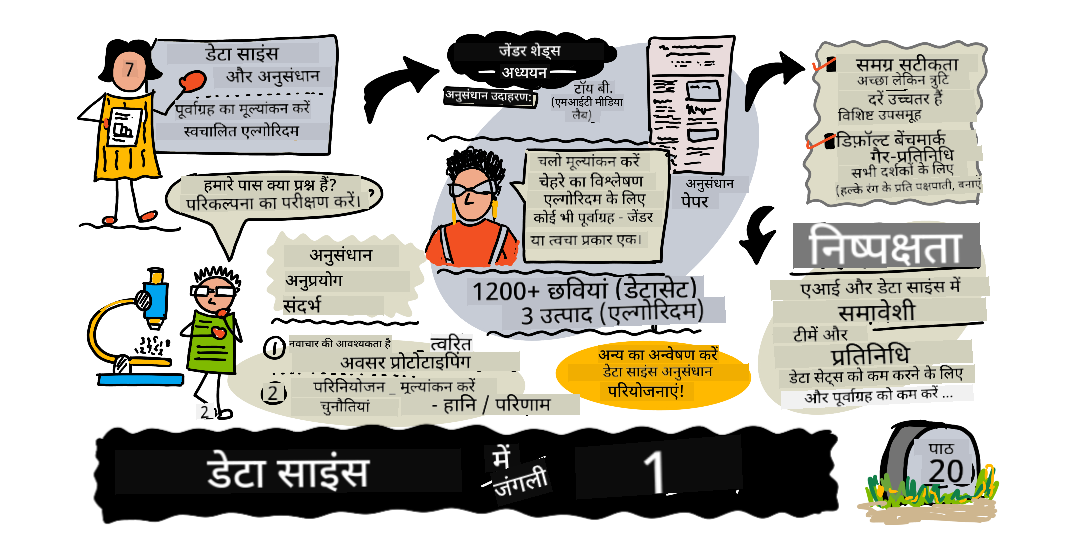 7
डेटा साइंस
और अनुसंधान
पूर्वाग्रह का मूल्यांकन करें
स्वचालित एल्गोरिदम
हमारे पास क्या प्रश्न हैं? ?
परिकल्पना का परीक्षण करें।
अनुसंधान
अनुप्रयोग
संदर्भ
1 नवाचार की आवश्यकता है _ त्वरित
अवसर प्रोटोटाइपिंग
2 परिनियोजन _ मूल्यांकन करें
चुनौतियां - हानि / परिणाम
2
जेंडर शेड्स
अध्ययन
अनुसंधान उदाहरण:
टॉय बी.
(एमआईटी मीडिया
लैब)
चलो मूल्यांकन करें
चेहरे का विश्लेषण
एल्गोरिदम के लिए
कोई भी पूर्वाग्रह - जेंडर
या त्वचा प्रकार एक।
अनुसंधान
पेपर
1200+ छवियां (डेटासेट)
3 उत्पाद (एल्गोरिदम)
अन्य का अन्वेषण करें
डेटा साइंस अनुसंधान
परियोजनाएं!
समग्र सटीकता
अच्छा लेकिन त्रुटि
दरें उच्चतर हैं
विशिष्ट उपसमूह
डिफ़ॉल्ट बेंचमार्क
गैर-प्रतिनिधि
सभी दर्शकों के लिए
(हल्के रंग के प्रति पक्षपाती, बनाएं
निष्पक्षता
एआई और डेटा साइंस में
समावेशी
टीमें और
प्रतिनिधि
डेटा सेट्स को कम करने के लिए
और पूर्वाग्रह को कम करें ...
डेटा साइंस में जंगली 1
पाठ
20